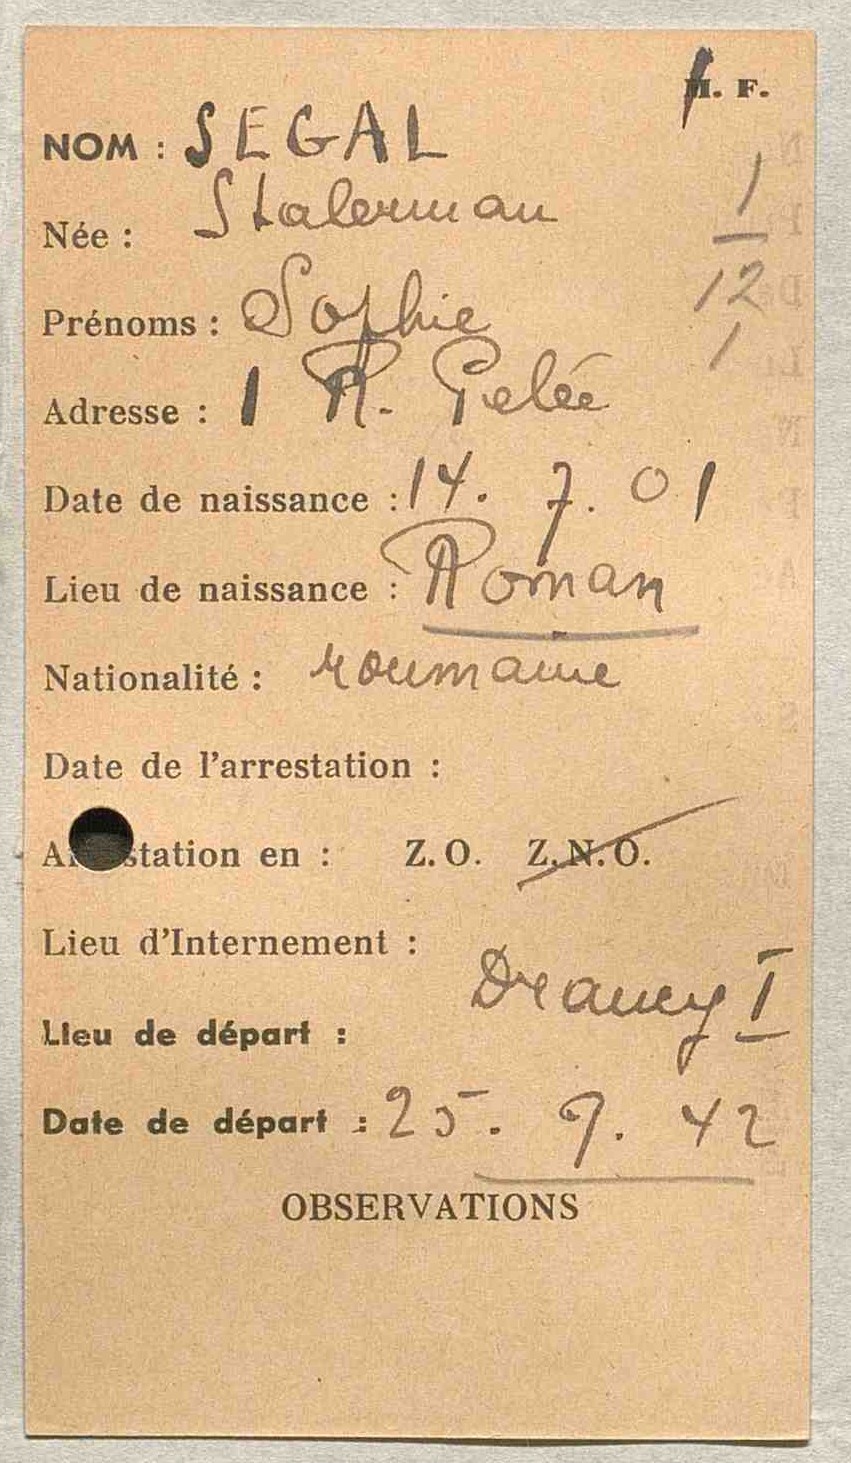 M. F.
NOM : SEGAL
Née : Stalerman
1
Prénoms : Sophie
12
1
Adresse : 1 R. Gelée
Date de naissance : 14. 7. 01
Lieu de naissance : Roman
Nationalité : roumaine
Date de l'arrestation :
Arrestation en : Z.O. Z.N.O.
Lieu d'Internement :
Lieu de départ : Drancy I
Date de départ : 25. 9. 42
OBSERVATIONS